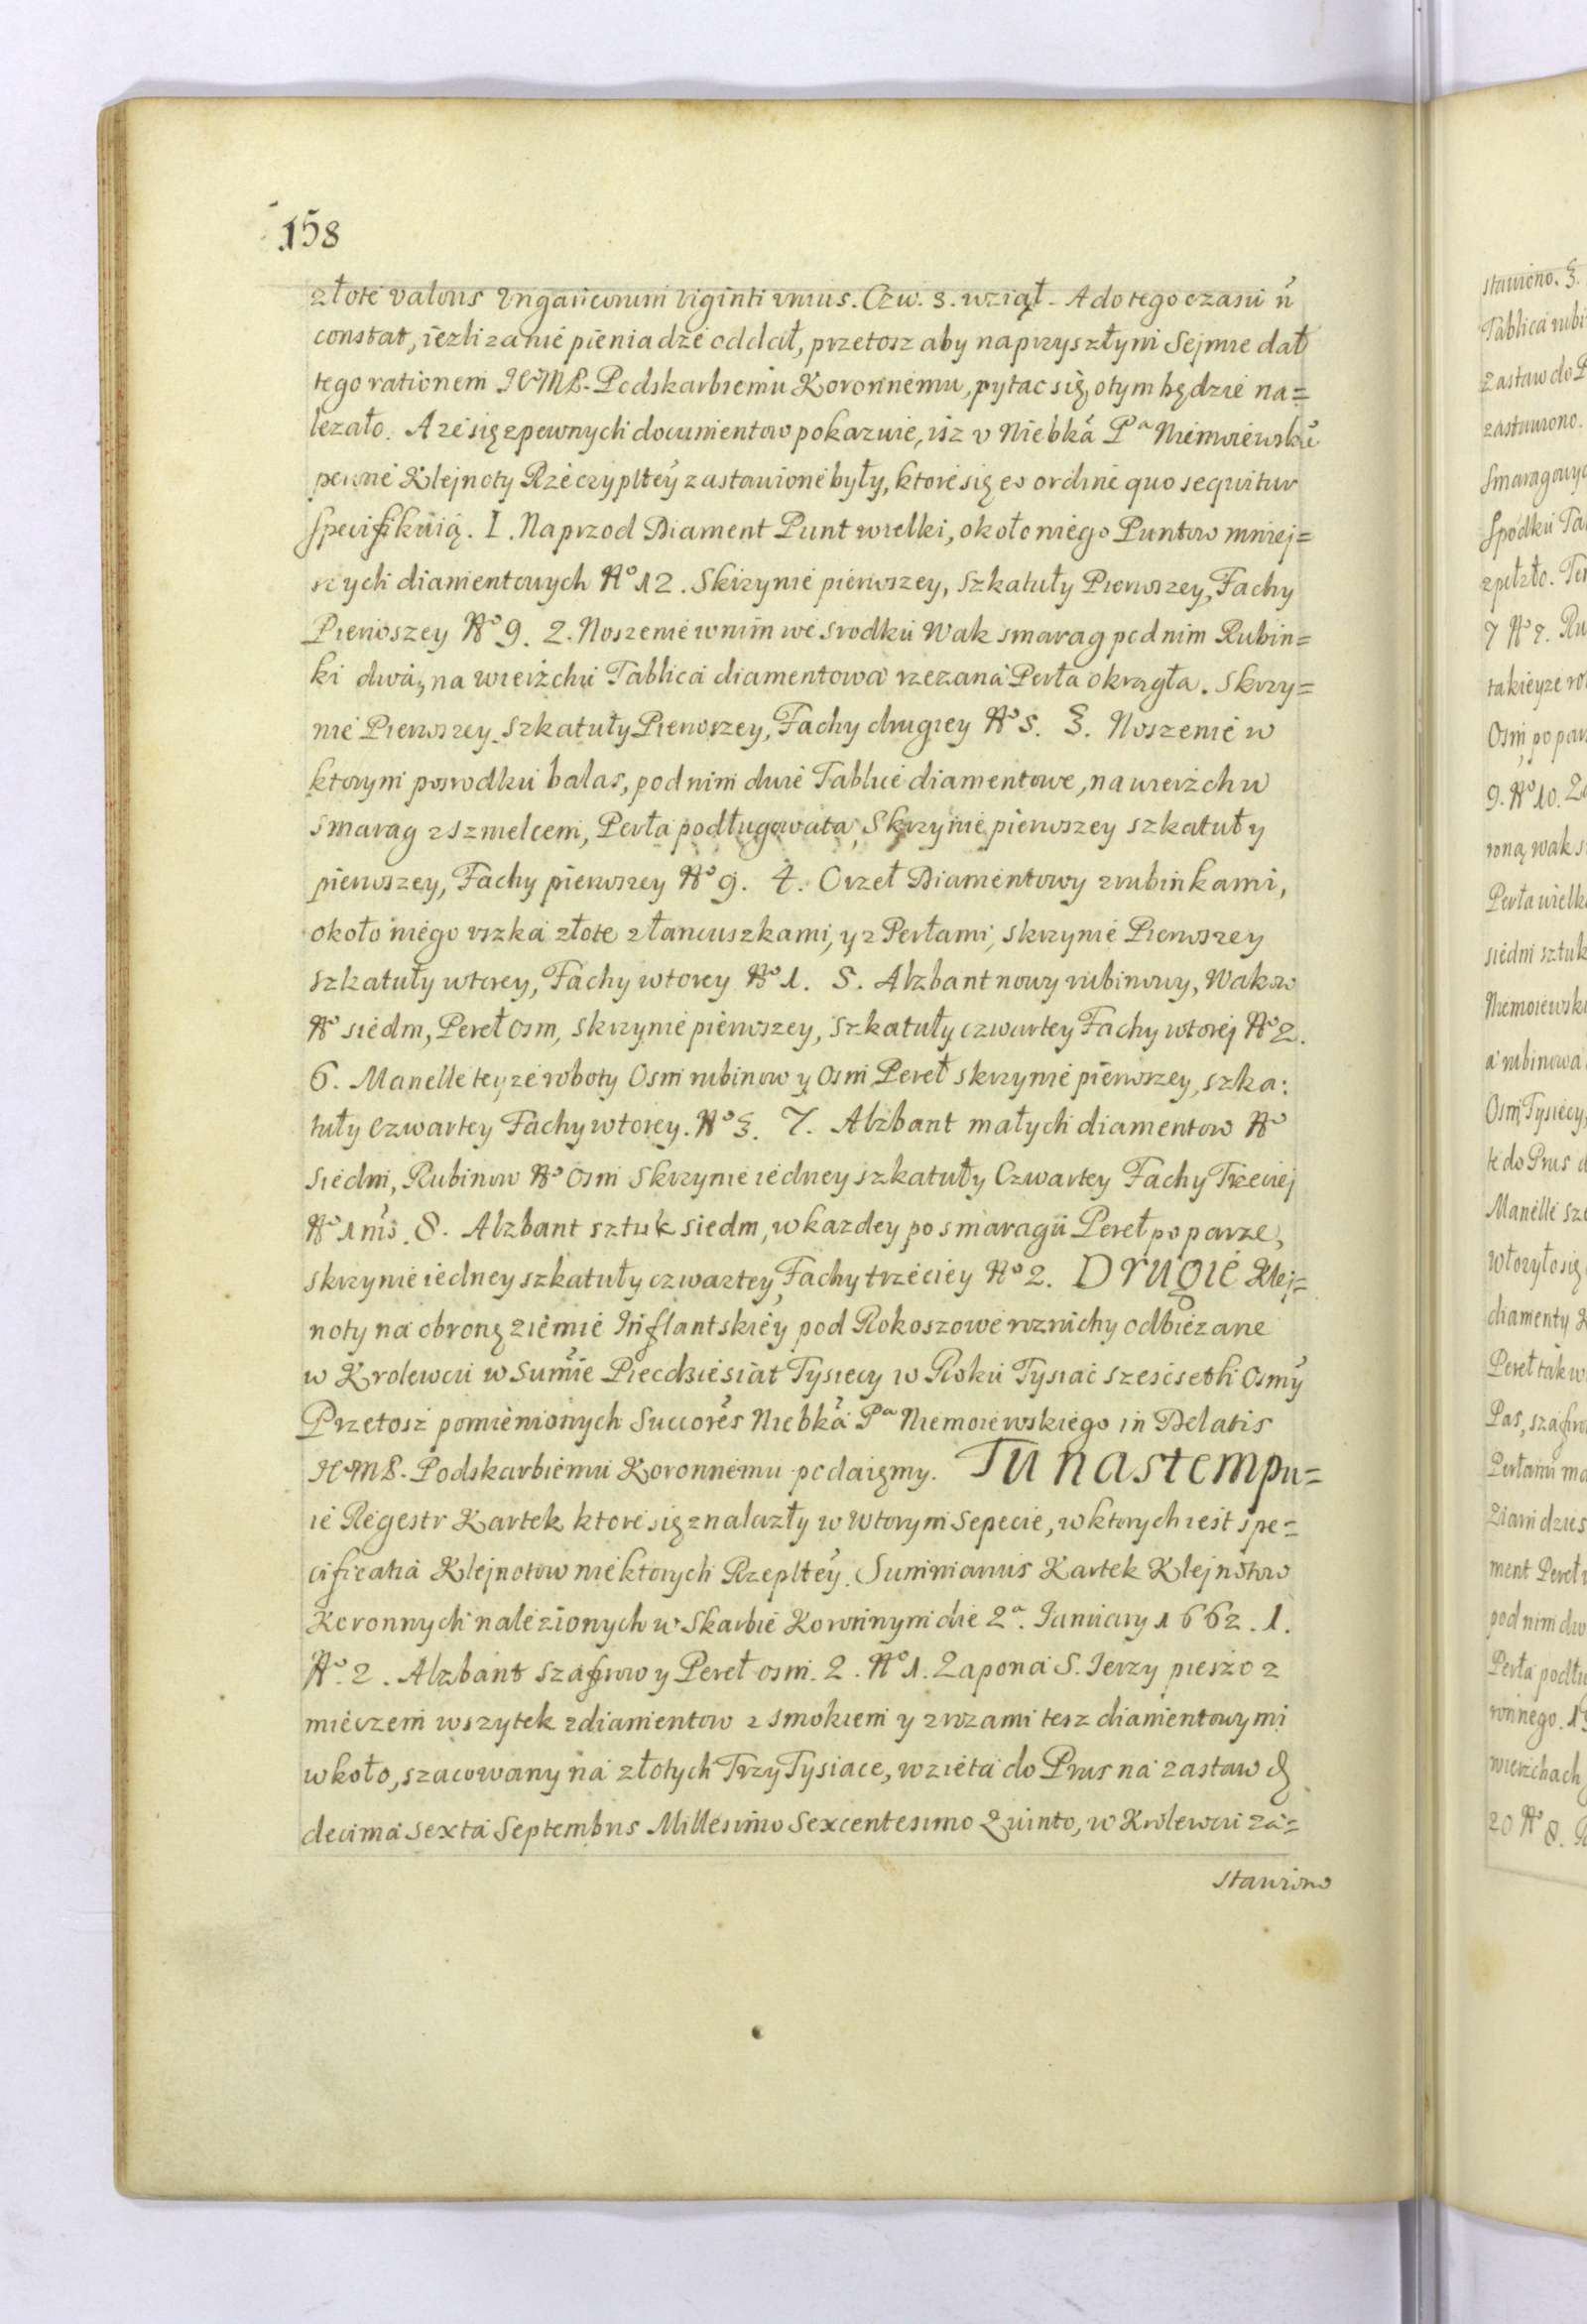 158
złote valoris Vngaricorum viginti vnius. Czw. 3. wziął. A do tego czasu ñ
constat, iezli za nie pieniadze oddał, przetosz aby na przyszłym Sejmie dał
tego rationem Podskarbiemu Koronnemu, pytac się o tym będzie na=
lezało. A ze się z pewnych documentow pokazuie, isz v Niebka Pª Niemoiewsk
pewne Klejnoty Rzeczyplteÿ zastawione były, ktore się eo ordine quo sequitur
specifikuią. I. Naprzod Diament Punt wielki, około niego Puntow mniej=
szych diamentowych Nº 12. Skrzynie pierwszey, szkatuły Pierwszey, Fachy
Pierwszey Nº 9. 2. Noszenie w nim we srodku Wak smarag pod nim Rubin=
ki dwa, na wierzchu Tablica diamentowa rzezana Perła okrągła. Skrzy=
nie Pierwszey szkatuły Pierwszey, Fachy drugiey Nº 5. 3. Noszenie w
ktorym posrodku balas, pod nim dwie Tablice diamentowe, na wierzchu
smarag z szmelcem, Perła podługowata, Skrzynie pierwszey szkatuły
pierwszey, Fachy pierwszey Nº 9. 4. Orzeł Diamentowy z rubinkami,
około niego vszka złote z łancuszkami, y z Perłami, skrzynie Pierwszey
szkatuły wtorey, Fachy wtorey Nº 1. 5. Alzbant nowy rubinowy, Wakow
Nº siedm, Pereł osm, skrzynie pierwszey, szkatuły czwartey Fachy wtorej Nº 2.
6. Manelle teyze roboty Osm rubinow y Osm Pereł skrzynie pierwszey, szka:
tuły Czwartey Fachy wtorey. Nº 3. 7. Alzbant małych diamentow Nº
siedm, Rubinow Nº Osm Skrzynie iedney szkatuły Czwartey Fachy Trzeciej
Nº 1 8. Alzbant sztuk siedm, w kazdey po smaragu Pereł po parze,
skrzynie iedney szkatuły czwartey, Fachy trzeciey Nº 2. DRUGIE Klej=
noty na obronę ziemie Inflantskiey pod Rokoszowe rozruchy odbiezane
w Krolewcu w Sumie Piecdziesiat Tysiecy w Roku Tysiac szescseth Osmÿ
Przetosz pomienionych Succores Niebka Pª Niemoiewskiego in Delatis
Podskarbiemu Koronnemu podaięmy. Tu nastempu=
ie Regestr Kartek ktore się znalazły w Wtorym Sepecie, w ktorych iest spe=
cificatia Klejnotow niektorych Rzeplteÿ. Summarius Kartek Klejnotow
Koronnych nalezionych w Skarbie Koronnym die 2ª. Ianuary 1662. 1.
Nº. 2. Alzbant szafirow y Pereł osm. 2. Nº 1. Zapona S. Ierzy pieszo z
mieczem wszytek z diamentow z smokiem y z rozami tesz diamentowymi
w koło, szacowany na złotych Trzy Tysiace, wzieta do Prus na zastaw
decima sexta Septembris Millesimo Sexcentesimo Quinto, w Krolewcu za=
stawiono